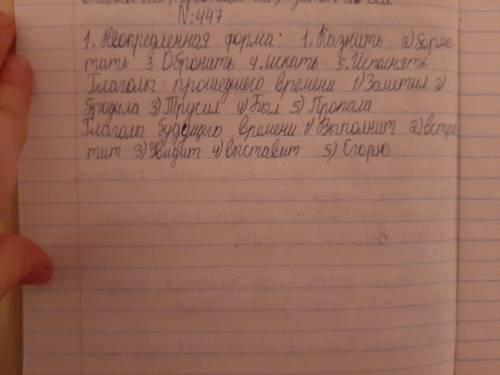 N:447
1. Неопредленная форма: 1. Казнить 2) бормо-
тать 3. Обронить 4. искать 5. Исполнять
Глаголы прошедшего времени: 1) Заметил 2)
бродила 3) Трусил 4) Был 5) Пропала
Глаголы будущего времени 1) Выполнит 2) встре
тит 3) Увидит 4) выставит 5) Сгорю